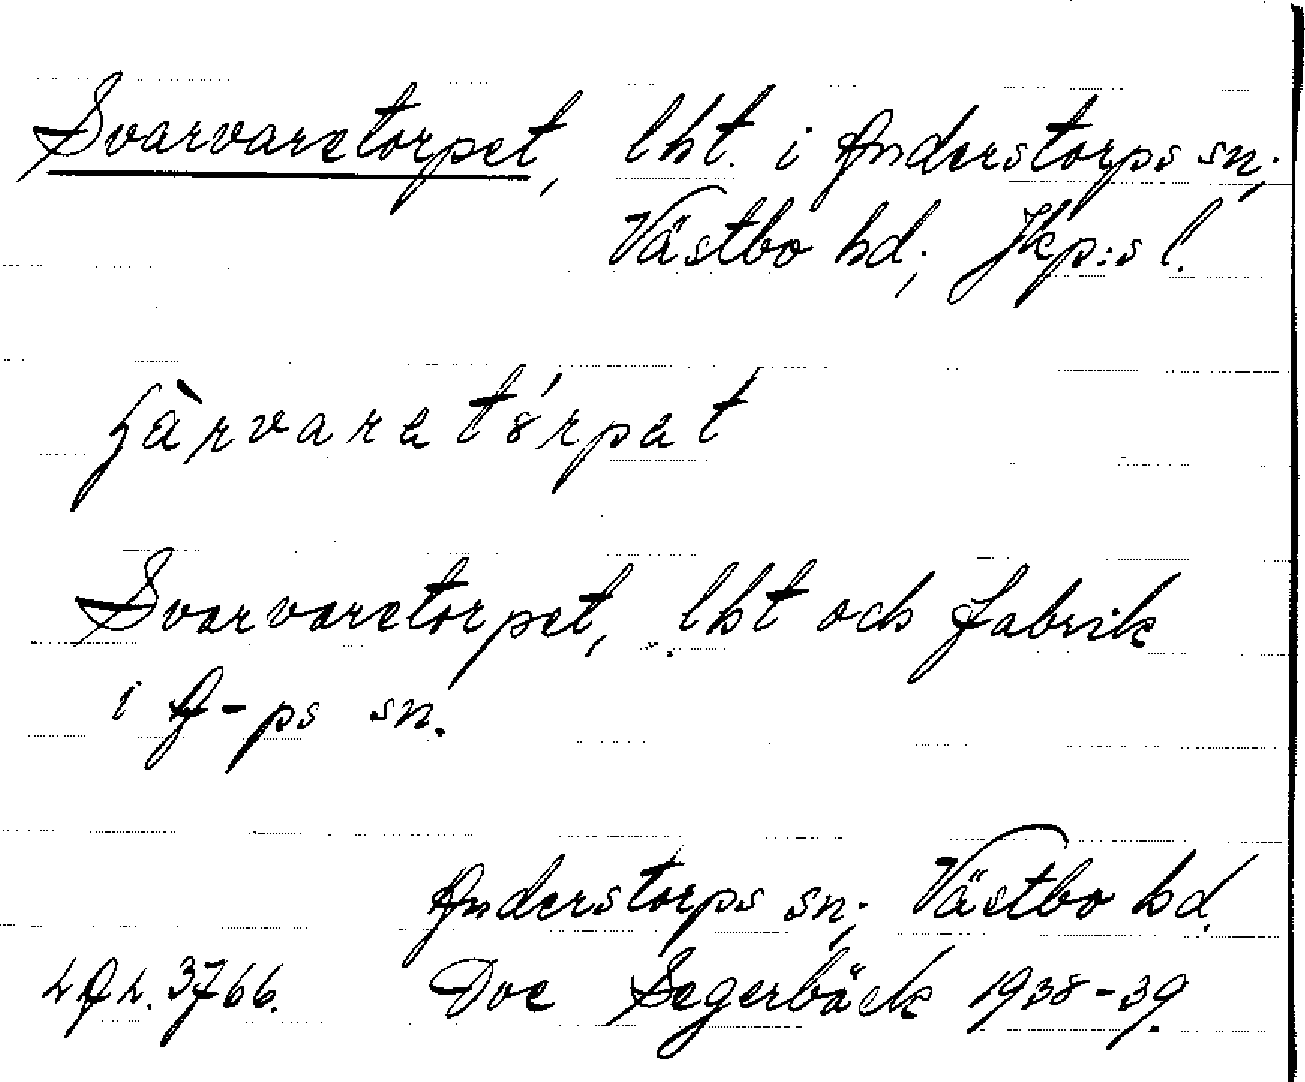 Svarvaretorpet, lht. i Anderstorps sn;
Västbo hd; Jkp:s l.
Svarvaretorpet, lht och fabrik
i A-ps sn.
Anderstorps sn; Västbo hd.
LAL. 3766. Dve Segerbäck 1938-39.